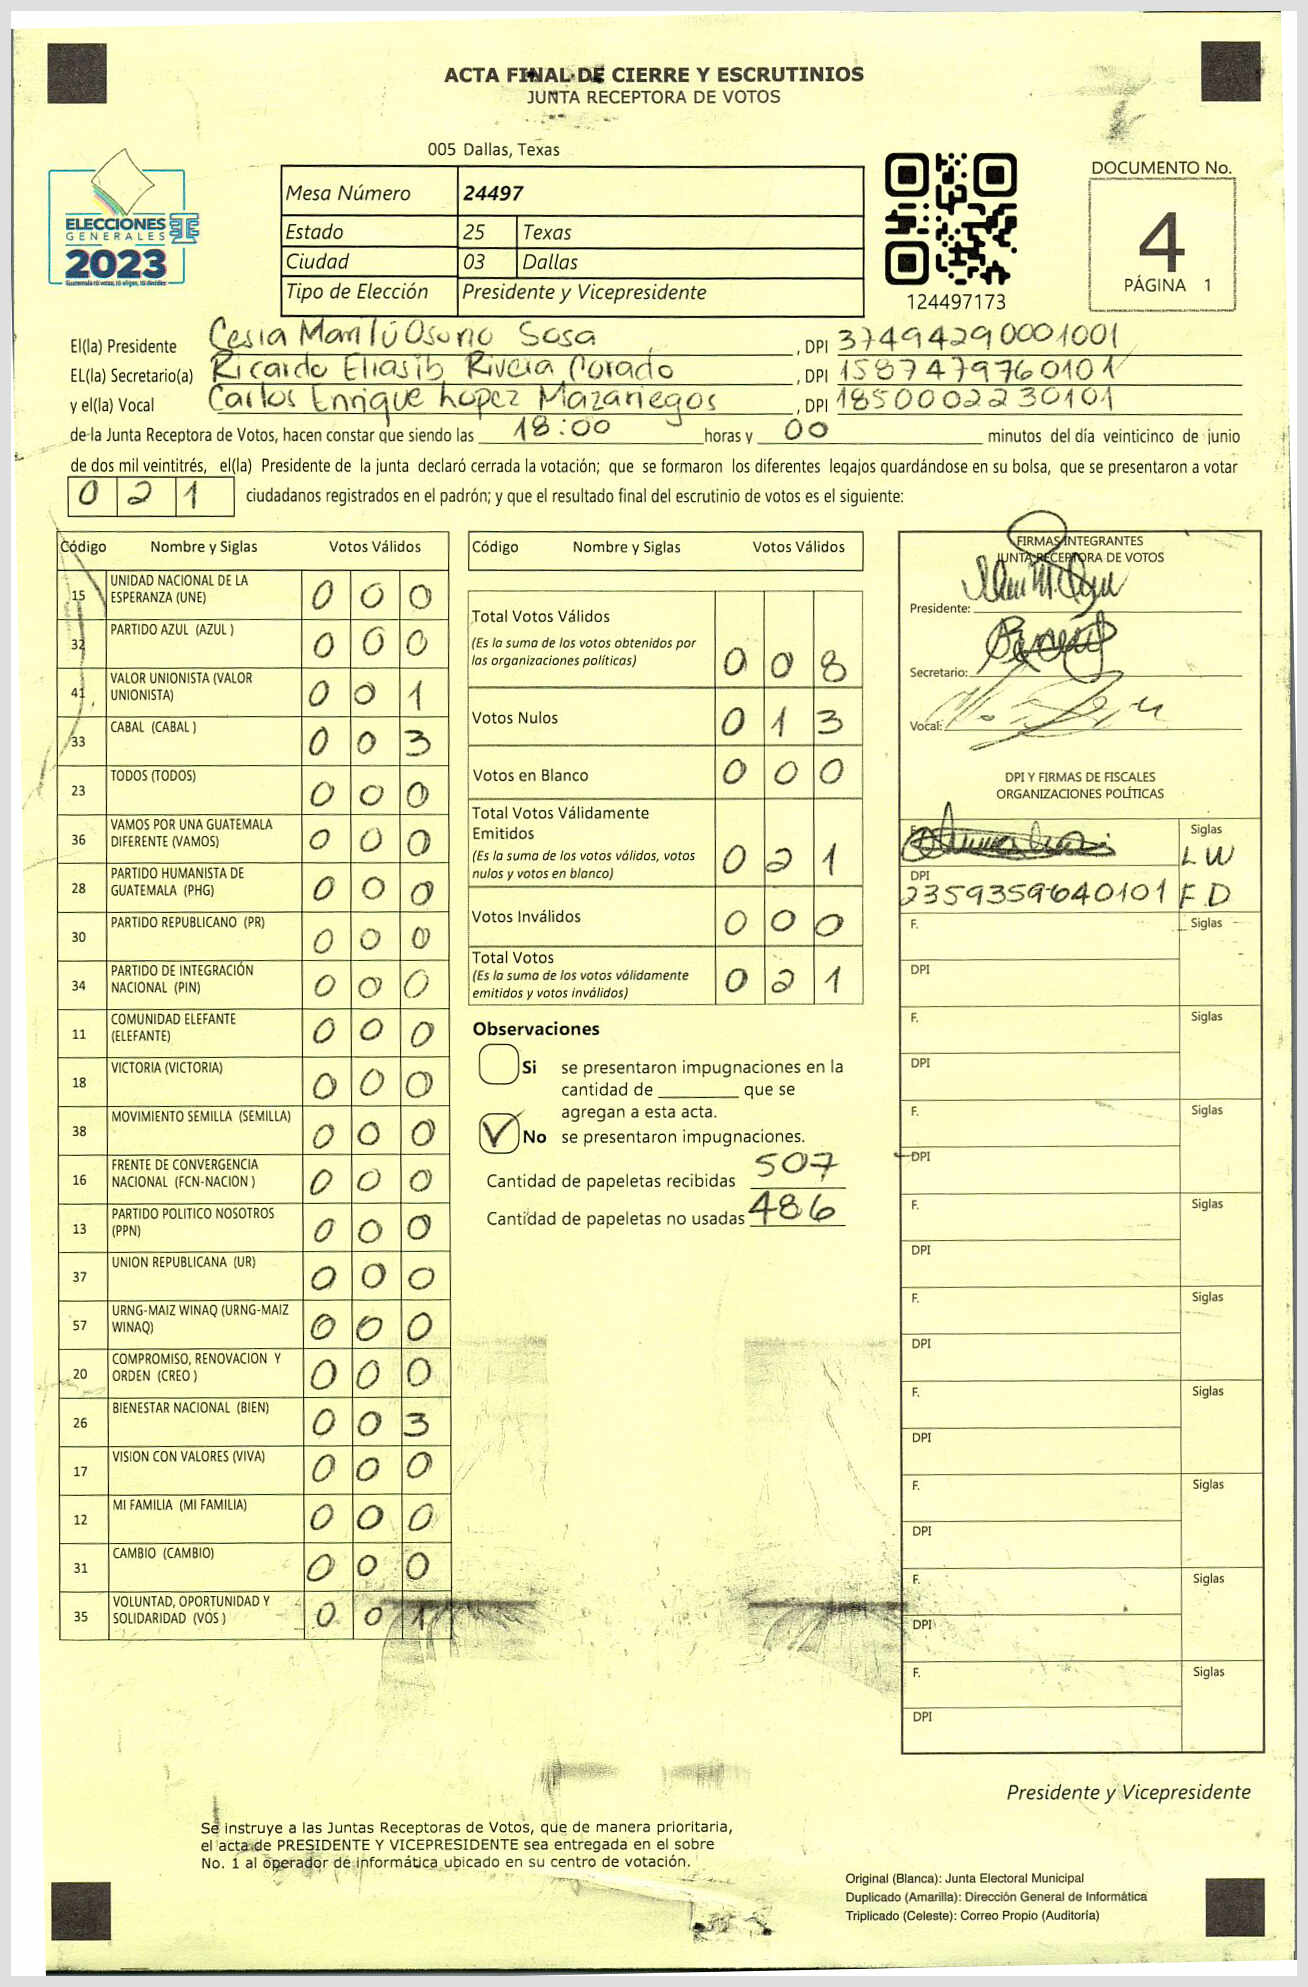 ACTA FINAL DE CIERRE Y ESCRUTINIOS
JUNTA RECEPTORA DE VOTOS
005 Dallas, Texas
ELECCIONES
GENERALES
2023
Guatemala tú votas, tú eliges, tú decides
Mesa Número 24497
Estado 25 Texas
Ciudad 03 Dallas
Tipo de Elección Presidente y Vicepresidente
124497173
DOCUMENTO No.
4
PÁGINA 1
El(la) Presidente Cesia Marilú Osorio Sosa, DPI 37494290001001
EL(la) Secretario(a) Ricardo Eliasib Rivera Corado, DPI 1587479760101
y el(la) Vocal Carlos Enrique Lopez Mazariegos, DPI 1850002230101
de la Junta Receptora de Votos, hacen constar que siendo las 18:00 horas y 00 minutos del día veinticinco de junio
de dos mil veintitrés, el(la) Presidente de la junta declaró cerrada la votación; que se formaron los diferentes legajos quardándose en su bolsa, que se presentaron a votar
0 2 1 ciudadanos registrados en el padrón; y que el resultado final del escrutinio de votos es el siguiente:
Código Nombre y Siglas Votos Válidos
15 UNIDAD NACIONAL DE LA ESPERANZA (UNE) 0 0 0
32 PARTIDO AZUL (AZUL ) 0 0 0
41 VALOR UNIONISTA (VALOR UNIONISTA) 0 0 1
33 CABAL (CABAL ) 0 0 3
23 TODOS (TODOS) 0 0 0
36 VAMOS POR UNA GUATEMALA DIFERENTE (VAMOS) 0 0 0
28 PARTIDO HUMANISTA DE GUATEMALA (PHG) 0 0 0
30 PARTIDO REPUBLICANO (PR) 0 0 0
34 PARTIDO DE INTEGRACIÓN NACIONAL (PIN) 0 0 0
11 COMUNIDAD ELEFANTE (ELEFANTE) 0 0 0
18 VICTORIA (VICTORIA) 0 0 0
38 MOVIMIENTO SEMILLA (SEMILLA) 0 0 0
16 FRENTE DE CONVERGENCIA NACIONAL (FCN-NACION ) 0 0 0
13 PARTIDO POLITICO NOSOTROS (PPN) 0 0 0
37 UNION REPUBLICANA (UR) 0 0 0
57 URNG-MAIZ WINAQ (URNG-MAIZ WINAQ) 0 0 0
20 COMPROMISO, RENOVACION Y ORDEN (CREO ) 0 0 0
26 BIENESTAR NACIONAL (BIEN) 0 0 3
17 VISION CON VALORES (VIVA) 0 0 0
12 MI FAMILIA (MI FAMILIA) 0 0 0
31 CAMBIO (CAMBIO) 0 0 0
35 VOLUNTAD, OPORTUNIDAD Y SOLIDARIDAD (VOS ) 0 0 1
Código Nombre y Siglas Votos Válidos
Total Votos Válidos
(Es la suma de los votos obtenidos por
las organizaciones políticas) 0 0 8
Votos Nulos 0 1 3
Votos en Blanco 0 0 0
Total Votos Válidamente
Emitidos
(Es la suma de los votos válidos, votos
nulos y votos en blanco) 0 2 1
Votos Inválidos 0 0 0
Total Votos
(Es la suma de los votos válidamente
emitidos y votos inválidos) 0 2 1
Observaciones
Si se presentaron impugnaciones en la
cantidad de ________ que se
agregan a esta acta.
No se presentaron impugnaciones.
Cantidad de papeletas recibidas 507
Cantidad de papeletas no usadas 486
FIRMAS INTEGRANTES
JUNTA RECEPTORA DE VOTOS
Presidente:
Secretario:
Vocal:
DPI Y FIRMAS DE FISCALES
ORGANIZACIONES POLÍTICAS
F. Siglas
LW
DPI
2359359640101 F.D
F. Siglas
DPI
F. Siglas
DPI
F. Siglas
DPI
F. Siglas
DPI
F. Siglas
DPI
F. Siglas
DPI
F. Siglas
DPI
F. Siglas
DPI
F. Siglas
DPI
Presidente y Vicepresidente
Se instruye a las Juntas Receptoras de Votos, que de manera prioritaria,
el acta de PRESIDENTE Y VICEPRESIDENTE sea entregada en el sobre
No. 1 al operador de informática ubicado en su centro de votación.
Original (Blanca): Junta Electoral Municipal
Duplicado (Amarilla): Dirección General de Informática
Triplicado (Celeste): Correo Propio (Auditoría)